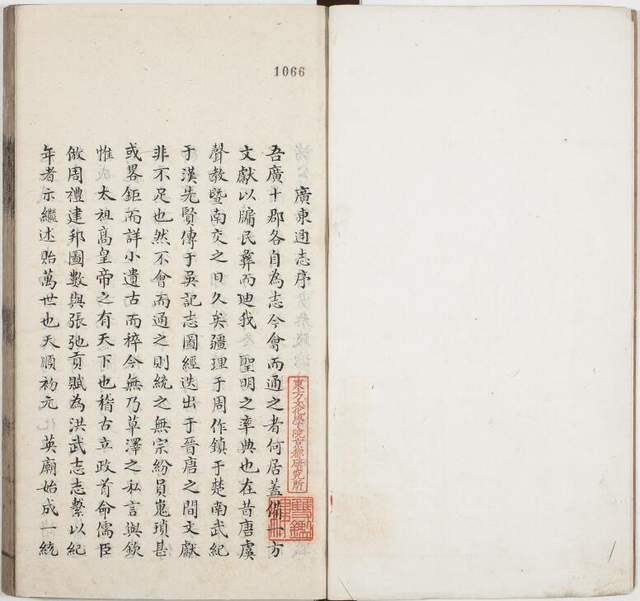 1066
廣東通志序
吾廣十郡各自為志今會而通之者何居蓋備一方
文獻以牖民彝而迪我 聖明之率典也在昔唐虞
聲教暨南交之日久矣疆理于周作鎮于楚南武紀
于漢先賢傳于吳記志圖經迭出于晉唐之間文獻
非不足也然不會而通之則統之無宗紛員嵬瑣甚
或畧鉅而詳小遺古而梓今無乃草澤之私言與欽
惟 太祖高皇帝之有天下也稽古立政首命儒臣
倣周禮建邦圖數與張弛貢賦為洪武志志繫以紀
年者示繼述貽萬世也天順初元 英廟始成一統
東方文化學院京都研究所